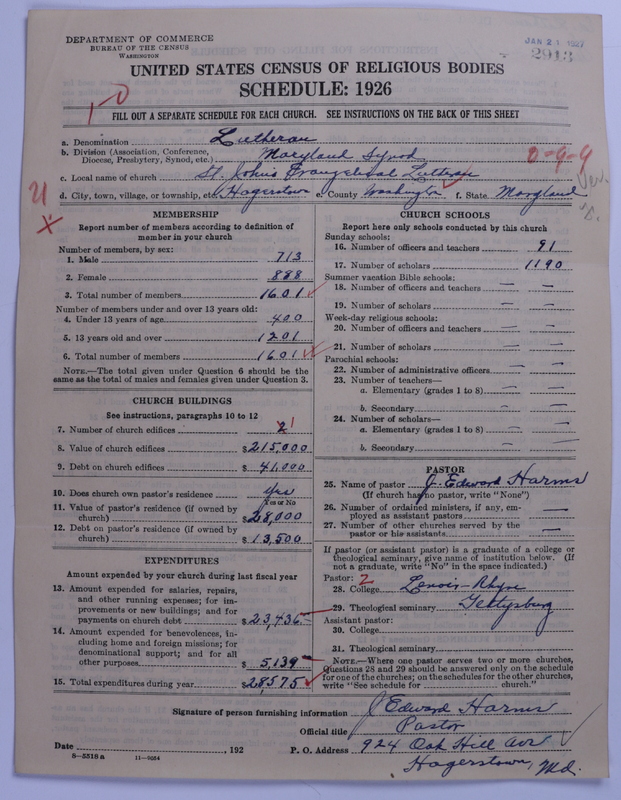 DEPARTMENT OF COMMERCE
BUREAU OF THE CENSUS
WASHINGTON
JAN 21 1927
2913
UNITED STATES CENSUS OF RELIGIOUS BODIES
SCHEDULE: 1926
1-0
FILL OUT A SEPARATE SCHEDULE FOR EACH CHURCH. SEE INSTRUCTIONS ON THE BACK OF THIS SHEET
a. Denomination Lutheran
b. Division (Association, Conference, Diocese, Presbytery, Synod, etc.) Maryland Synod
0-9-9
c. Local name of church St. John's Evangelical Lutheran
d. City, town, village, or township, etc. Hagerstown e. County Washington f. State Maryland
MEMBERSHIP
Report number of members according to definition of member in your church
Number of members, by sex:
1. Male 713
2. Female 888
3. Total number of members 1601
Number of members under and over 13 years old:
4. Under 13 years of age 400
5. 13 years old and over 1201
6. Total number of members 1601
NOTE.—The total given under Question 6 should be the same as the total of males and females given under Question 3.
CHURCH BUILDINGS
See instructions, paragraphs 10 to 12
7. Number of church edifices 2 1
8. Value of church edifices $215,000
9. Debt on church edifices $41,000
10. Does church own pastor's residence Yes
Yes or No
11. Value of pastor's residence (if owned by church) $28,000
12. Debt on pastor's residence (if owned by church) $13,500
EXPENDITURES
Amount expended by your church during last fiscal year
13. Amount expended for salaries, repairs, and other running expenses; for improvements or new buildings; and for payments on church debt $23,436
14. Amount expended for benevolences, including home and foreign missions; for denominational support; and for all other purposes $5,139
15. Total expenditures during year $28,575
CHURCH SCHOOLS
Report here only schools conducted by this church
Sunday schools:
16. Number of officers and teachers 91
17. Number of scholars 1190
Summer vacation Bible schools:
18. Number of officers and teachers — —
19. Number of scholars — —
Week-day religious schools:
20. Number of officers and teachers — —
21. Number of scholars — —
Parochial schools:
22. Number of administrative officers — —
23. Number of teachers—
a. Elementary (grades 1 to 8) — —
b. Secondary — —
24. Number of scholars—
a. Elementary (grades 1 to 8) — —
b. Secondary — —
PASTOR
25. Name of pastor J. Edward Harms
(If church has no pastor, write "None")
26. Number of ordained ministers, if any, employed as assistant pastors —
27. Number of other churches served by the pastor or his assistants —
If pastor (or assistant pastor) is a graduate of a college or theological seminary, give name of institution below. (If not a graduate, write "No" in the space indicated.)
Pastor: 2
28. College Lenoir-Rhyne
29. Theological seminary Gettysburg
Assistant pastor:
30. College
31. Theological seminary
NOTE.—Where one pastor serves two or more churches, Questions 28 and 29 should be answered only on the schedule for one of the churches; on the schedules for the other churches, write "See schedule for church."
Signature of person furnishing information J Edward Harms
Official title Pastor
Date , 192 P. O. Address 924 Oak Hill Ave
Hagerstown, Md.
8—5518 a 11—9054